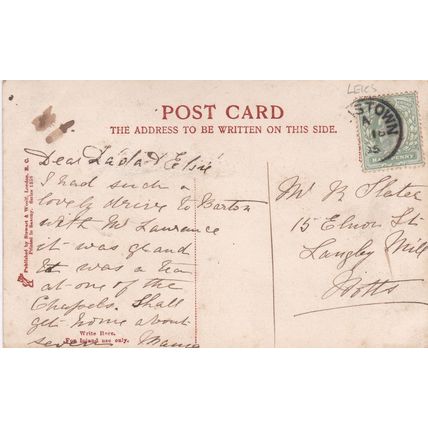 LEICS
POST CARD
THE ADDRESS TO BE WRITTEN ON THIS SIDE.
ISTOWN
HALFPENNY
Dear Dada & Elsie
I had such a
lovely drive to Barton
with Mr Lawrance
it was grand
It was a tea
at one of the
Chapels. Shall
get home about
seven
Mr R Slater
15 Elnor St
Langley Mill
Notts
Published by Stewart & Woolf, London, E.C.
Printed in Saxony. Series
Write Here.
For Inland use only.